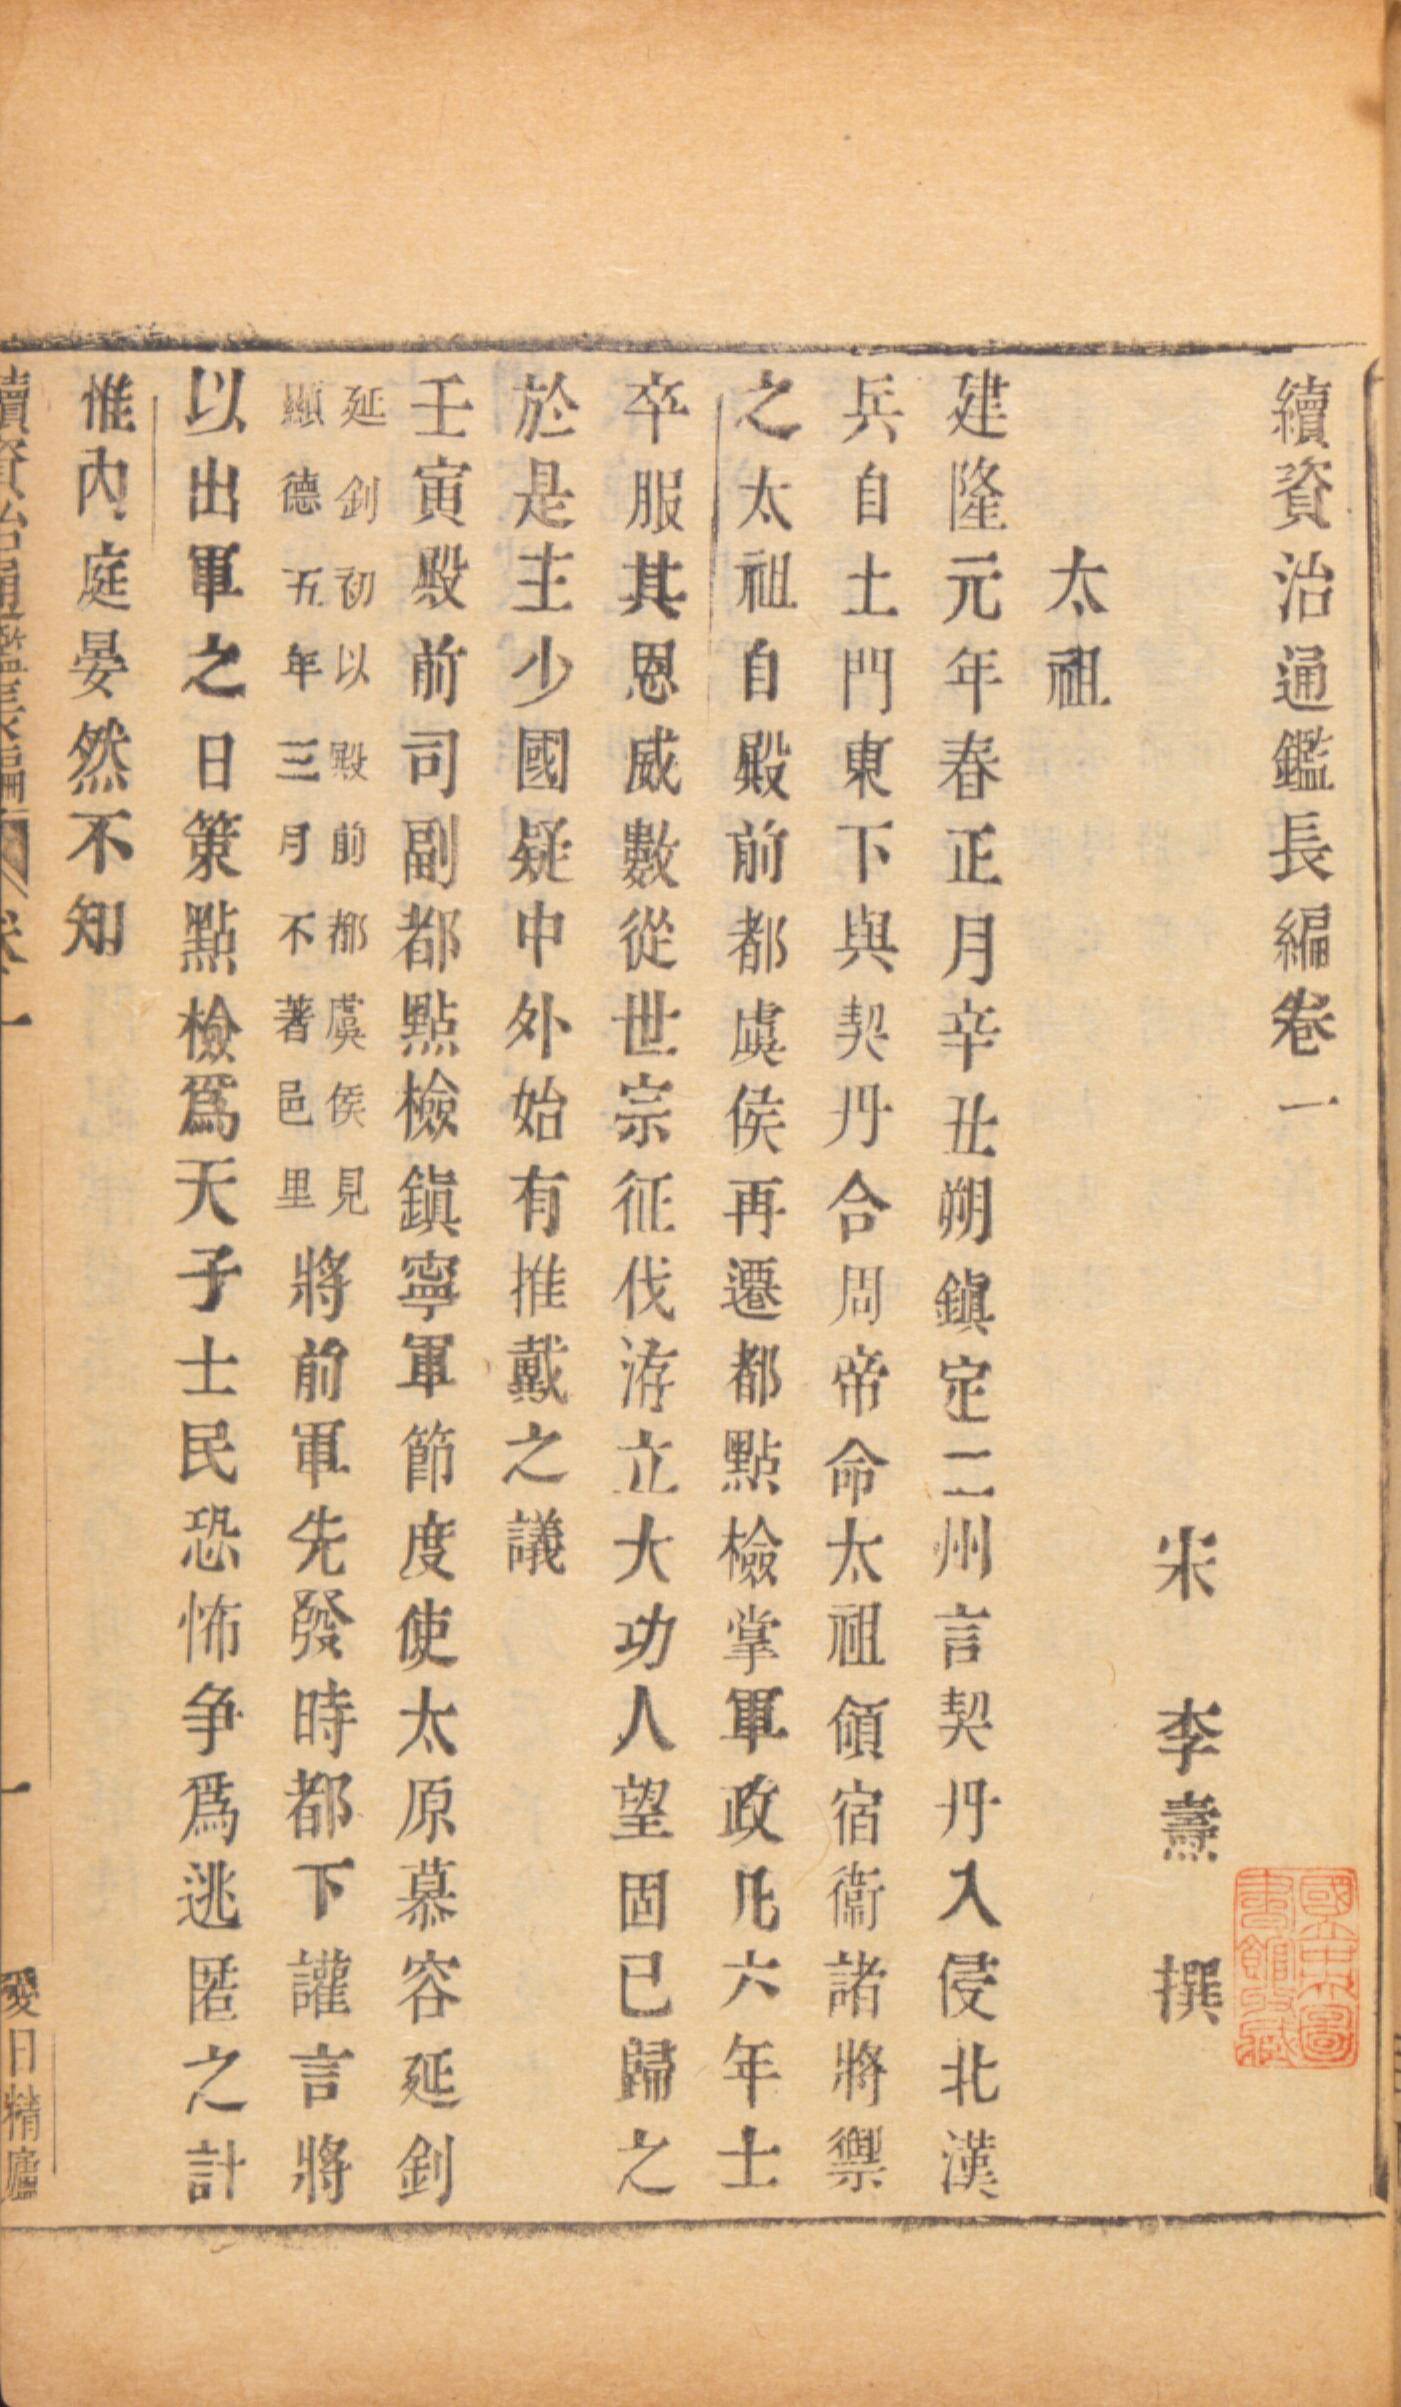 續資治通鑑長編卷一
宋 李燾 撰
太祖
建隆元年春正月辛丑朔鎮定二州言契丹入侵北漢
兵自土門東下與契丹合周帝命太祖領宿衞諸將禦
之太祖自殿前都虞侯再遷都點檢掌軍政凡六年士
卒服其恩威數從世宗征伐洊立大功人望固已歸之
於是主少國疑中外始有推戴之議
壬寅殿前司副都點檢鎮寧軍節度使太原慕容延釗
延釗初以殿前都虞侯見
顯德五年三月不著邑里
將前軍先發時都下讙言將
以出軍之日策點檢爲天子士民恐怖争爲逃匿之計
惟內庭晏然不知
續資治通鑑長編 卷一
一
愛日精廬
國立中央圖
書館收藏